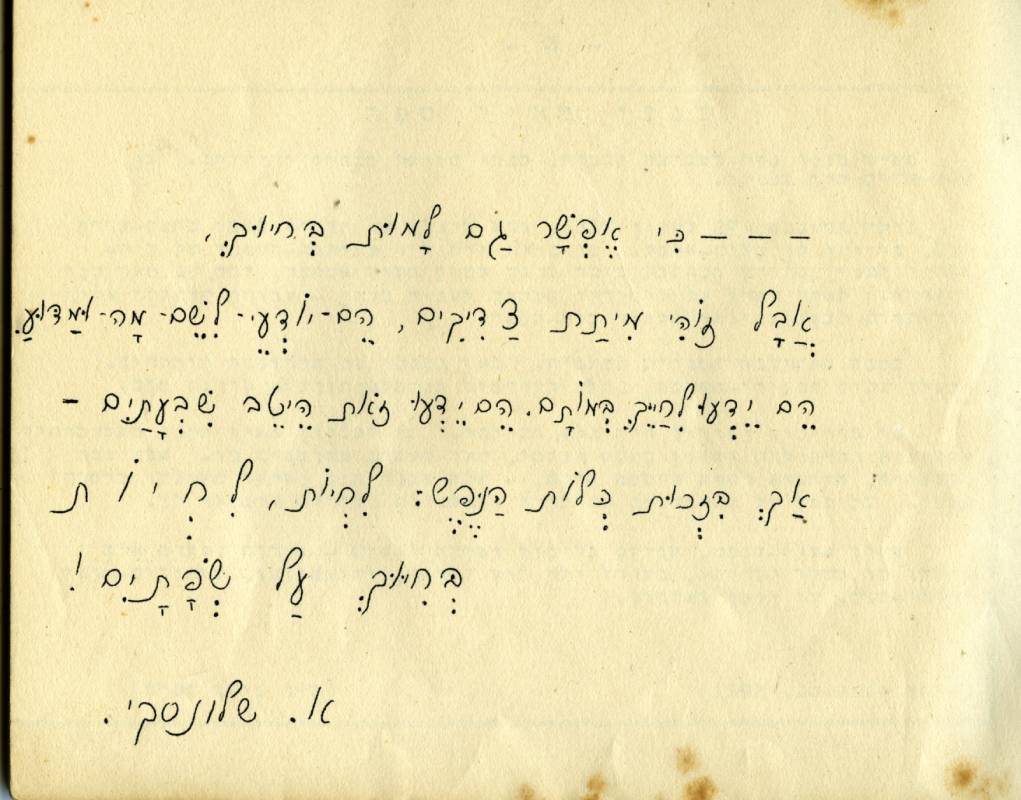 — כִּי אֶפְשָׁר גַּם לָמוּת בְּחִיּוּךְ,
אֲבָל זוֹהִי מִיתַת צַדִּיקִים, הֵם-יוֹדְעֵי-לְשֵׁם-מָה-וּמַדּוּעַ.
הֵם יֵדְעוּ לְחַיֵּךְ בְּמוֹתָם. הֵם יֵדְעוּ זֹאת הֵיטֵב שִׁבְעָתַיִם –
אַךְ בִּזְכוּת כְּלוֹת הַנֶּפֶשׁ: לִחְיוֹת, לִ חְ י וֹ ת
בְּחִיּוּךְ עַל שְׂפָתַיִם!
א. שלונסקי.